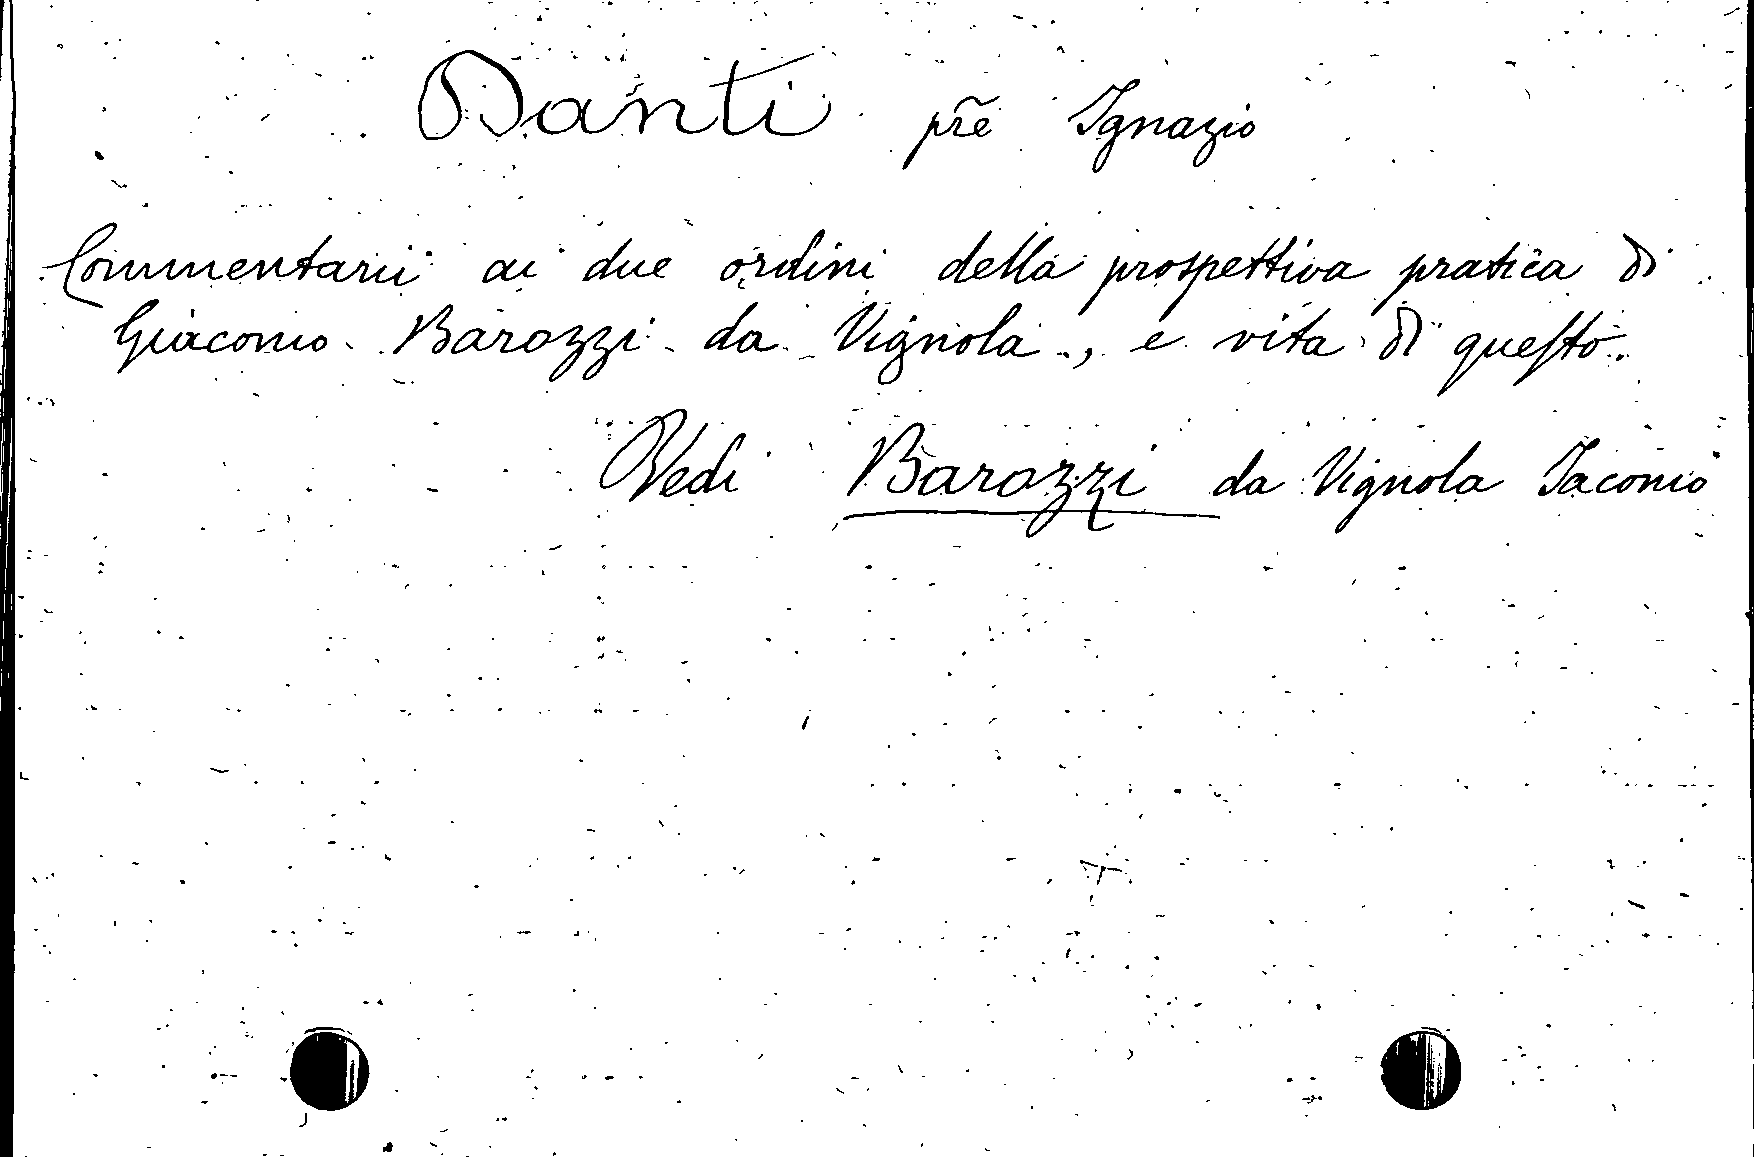 Danti prẽ Ignazio
Commentarii ai due ordini della prospettiva pratica di
Giacomo Barozzi da Vignola, e vita di questo.
Vedi Barozzi da Vignola Iacomo